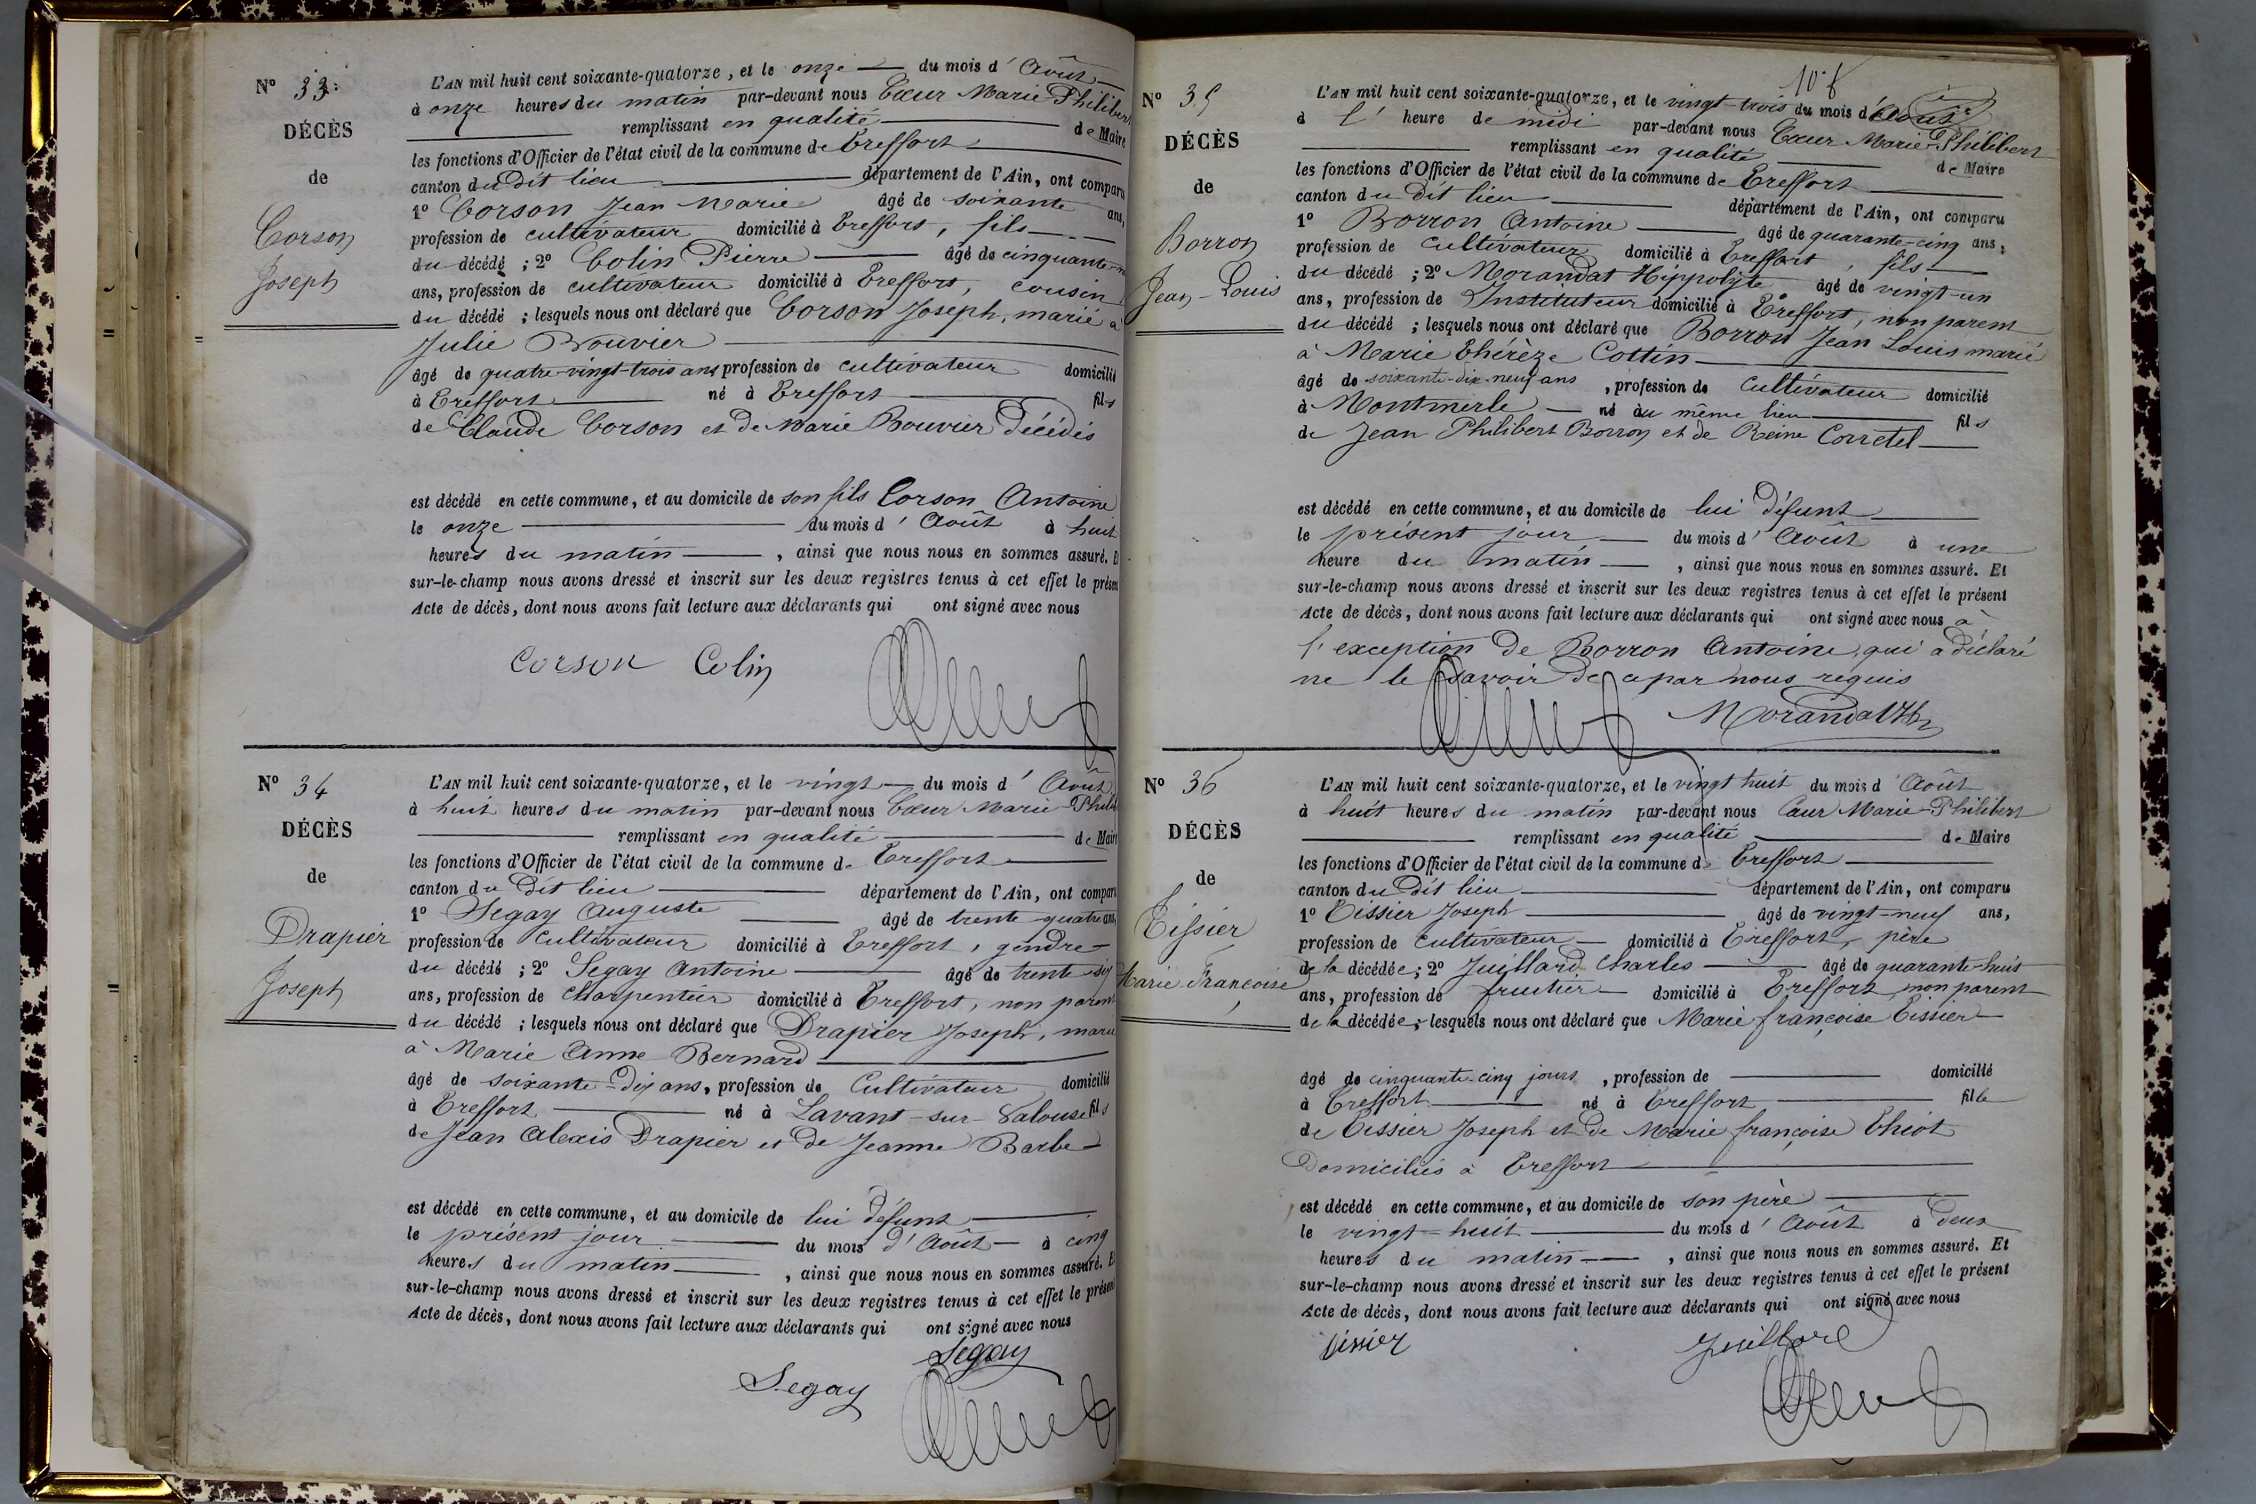 N° 33.
DÉCÈS
de
Corson
Joseph
L'AN mil huit cent soixante-quatorze, et le onze du mois d'Août
à onze heures du matin par-devant nous Cœur Marie Philibert
remplissant en qualité de Maire
les fonctions d'Officier de l'état civil de la commune de Treffort
canton du dit lieu département de l'Ain, ont comparu
1° Corson Jean Marie âgé de soixante ans,
profession de cultivateur domicilié à Treffort, fils
du décédé ; 2° Colin Pierre âgé de cinquante
ans, profession de cultivateur domicilié à Treffort, cousin
du décédé ; lesquels nous ont déclaré que Corson Joseph, marié à
Julie Bouvier
âgé de quatre-vingt-trois ans profession de cultivateur domicilié
à Treffort né à Treffort fils
de Claude Corson et de Marie Bouvier décédés
est décédé en cette commune, et au domicile de son fils Corson Antoine
le onze du mois d'Août à huit
heures du matin , ainsi que nous nous en sommes assuré. Et
sur-le-champ nous avons dressé et inscrit sur les deux registres tenus à cet effet le présent
Acte de décès, dont nous avons fait lecture aux déclarants qui ont signé avec nous
Corson Colin
N° 34
DÉCÈS
de
Drapier
Joseph
L'AN mil huit cent soixante-quatorze, et le vingt du mois d'Août
à huit heures du matin par-devant nous Cœur Marie-Phili
remplissant en qualité de Maire
les fonctions d'Officier de l'état civil de la commune de Treffort
canton du dit lieu département de l'Ain, ont comparu
1° Segay Auguste âgé de trente quatre ans,
profession de cultivateur domicilié à Treffort, gendre
du décédé ; 2° Segay Antoine âgé de trente-six
ans, profession de charpentier domicilié à Treffort, non parent
du décédé ; lesquels nous ont déclaré que Drapier Joseph, marié
à Marie Anne Bernard
âgé de soixante-dix ans, profession de Cultivateur domicilié
à Treffort né à Lavant-sur-Valouse fils
de Jean Alexis Drapier et de Jeanne Barbe
est décédé en cette commune, et au domicile de lui défunt
le présent jour du mois d'Août à cinq
heures du matin , ainsi que nous nous en sommes assuré. Et
sur-le-champ nous avons dressé et inscrit sur les deux registres tenus à cet effet le présent
Acte de décès, dont nous avons fait lecture aux déclarants qui ont signé avec nous
Segay
Segay
N° 35
DÉCÈS
de
Borron
Jean-Louis
L'AN mil huit cent soixante-quatorze, et le vingt-trois du mois d'Août
à l' heure de midi par-devant nous Cœur Marie-Philibert
remplissant en qualité de Maire
les fonctions d'Officier de l'état civil de la commune de Treffort
canton du dit lieu département de l'Ain, ont comparu
1° Borron Antoine âgé de quarante-cinq ans,
profession de cultivateur domicilié à Treffort, fils
du décédé ; 2° Morandat Hippolyte âgé de vingt-un
ans, profession de Instituteur domicilié à Treffort, non parent
du décédé ; lesquels nous ont déclaré que Borron Jean Louis marié
à Marie Thérèze Cottin
âgé de soixante-dix-neuf ans , profession de cultivateur domicilié
à Montmerle né au même lieu fils
de Jean Philibert Borron et de Reine Corretel
est décédé en cette commune, et au domicile de lui défunt
le présent jour du mois d'Août à une
heure du matin , ainsi que nous nous en sommes assuré. Et
sur-le-champ nous avons dressé et inscrit sur les deux registres tenus à cet effet le présent
Acte de décès, dont nous avons fait lecture aux déclarants qui ont signé avec nous à
l'exception de Borron Antoine, qui a déclaré
ne le savoir de ce par nous requis
Morandat H
N° 36
DÉCÈS
de
Tissier
Marie Françoise
L'AN mil huit cent soixante-quatorze, et le vingt huit du mois d'Août
à huit heures du matin par-devant nous Cœur Marie-Philibert
remplissant en qualité de Maire
les fonctions d'Officier de l'état civil de la commune de Treffort
canton du dit lieu département de l'Ain, ont comparu
1° Tissier Joseph âgé de vingt-neuf ans,
profession de cultivateur domicilié à Treffort, père
de la décédée ; 2° Juillard Charles âgé de quarante-huit
ans, profession de fruitier domicilié à Treffort non parent
de la décédée ; lesquels nous ont déclaré que Marie françoise Tissier
âgé de cinquante-cinq jours , profession de domicilié
à Treffort né à Treffort fille
de Tissier Joseph et de Marie françoise Thiot
Domiciliés à Treffort
est décédé en cette commune, et au domicile de son père
le vingt-huit du mois d'Août à deux
heures du matin , ainsi que nous nous en sommes assuré. Et
sur-le-champ nous avons dressé et inscrit sur les deux registres tenus à cet effet le présent
Acte de décès, dont nous avons fait lecture aux déclarants qui ont signé avec nous
Tissier Juillard